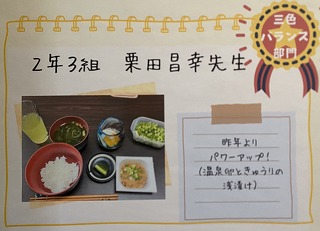 三色
バランス
部門
2年3組 栗田昌幸先生
昨年より
パワーアップ!
(温泉卵ときゅうりの
浅漬け)